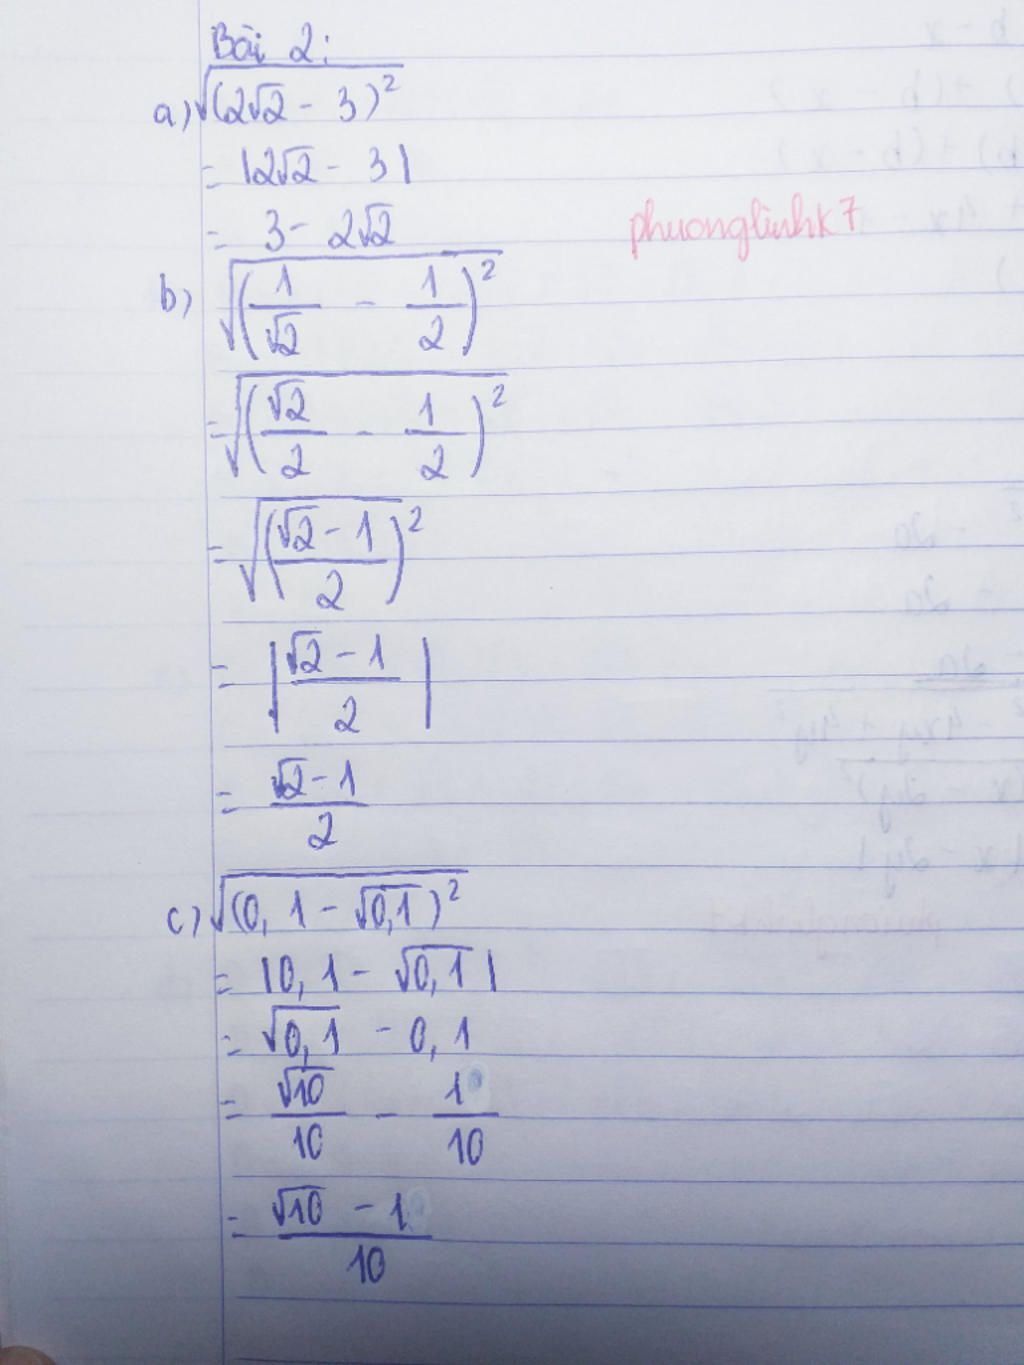 Bài 2:
a) √(2√2 - 3)²
= |2√2 - 3|
= 3 - 2√2
phuonglinhk7
b) √(1/√2 - 1/2)²
= √(√2/2 - 1/2)²
= √((√2 - 1)/2)²
= |(√2 - 1)/2|
= (√2 - 1)/2
c) √(0,1 - √0,1)²
= |0,1 - √0,1|
= √0,1 - 0,1
= √10/10 - 1/10
= (√10 - 1)/10